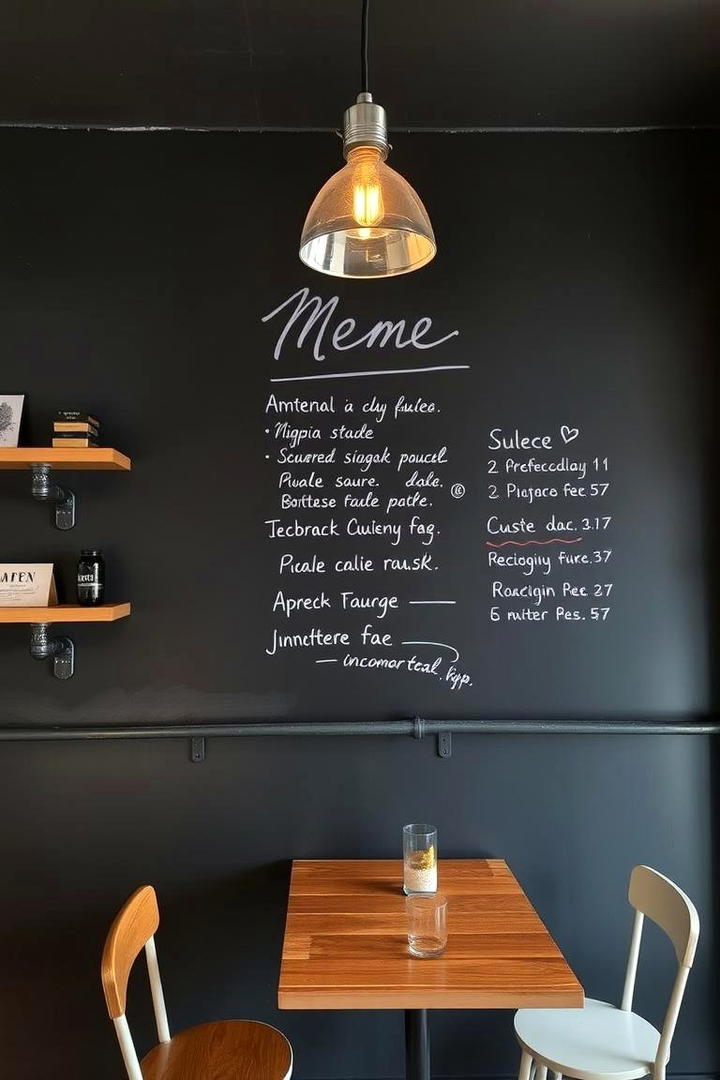 Meme
Amtenal à cly fulee.
• Nigpia stade
• Scuared singak poucel
Pwale saure. dale.
Boittese facle patle.
Jecbrack Cwleny fag.
Picale calie rau.sk.
Apreck Taurge
Jinncttere fae
incomar teal.
Sulece ♡
2 Prefeccdlay 11
2 Piajaco fee 57
Custe dac. 3.17
Reciogiiy fure. 37
Roaclgin Pee 27
6 nuiter Pes. 57